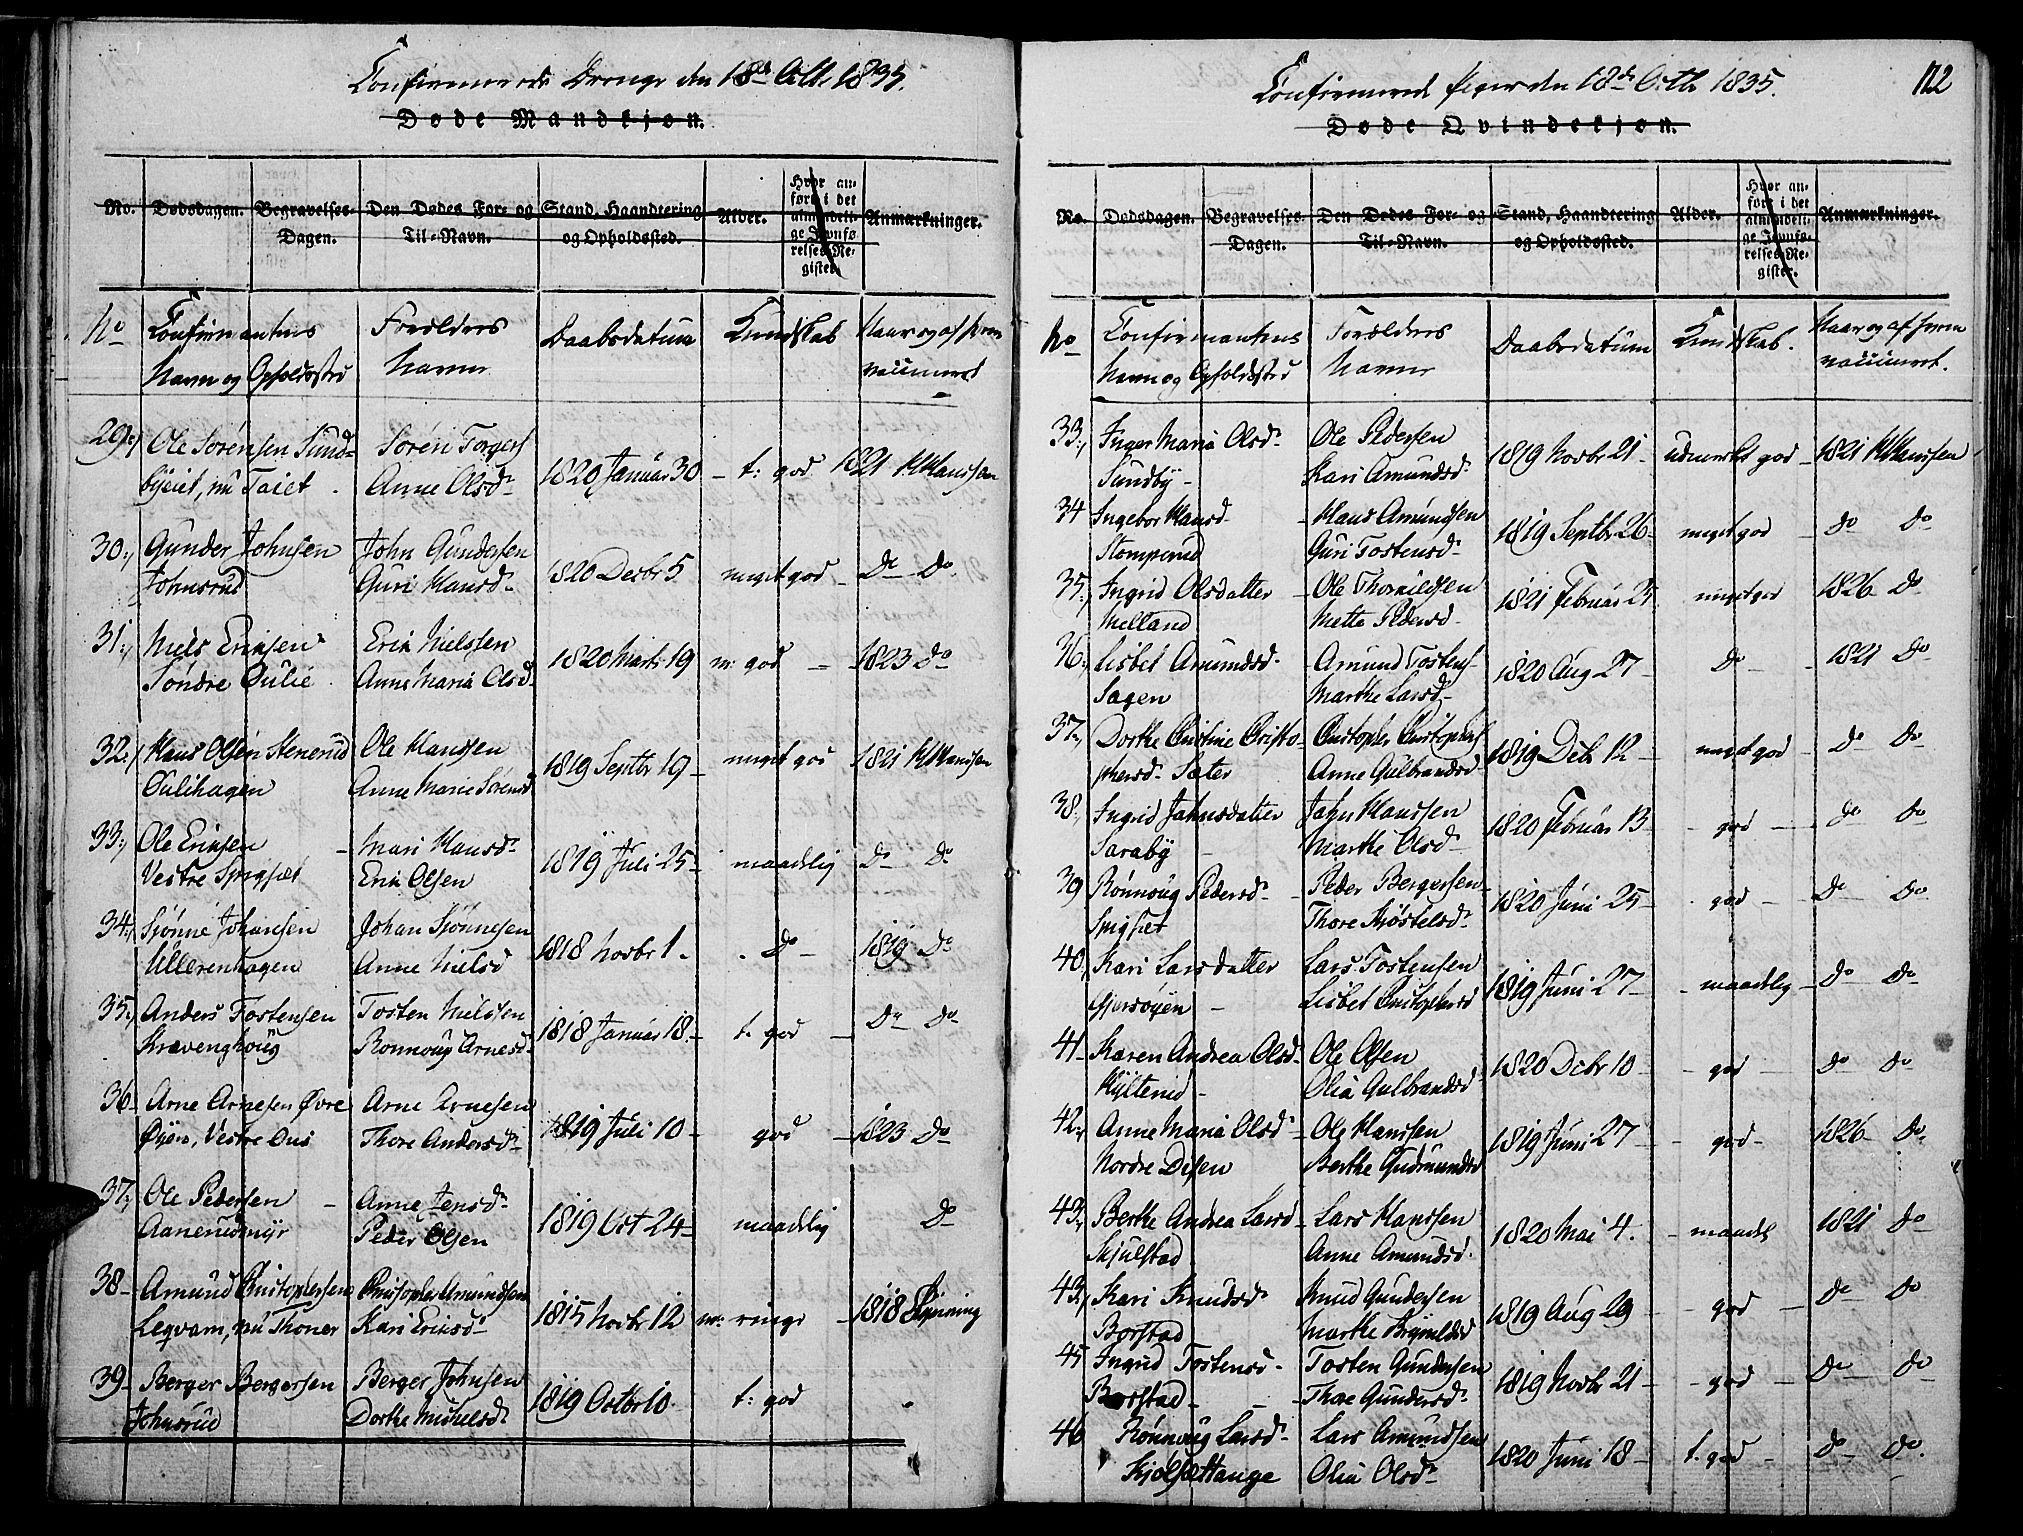 Confirmerede Drenge den 18de Octb. 1835.
Døde Mandkjøn.
No.
Dødsdagen.
Begravelses-Dagen.
Den Dødes For- og Til-Navn.
Stand, Haandtering og Opholdssted.
Alder.
Hvor anført i det almindelige Jevnførelses-Register.
Anmærkninger.
No Confirmantens Navn og Opholdssted
Forældres Navne
Daabsdatum
Kundskab
Naar og af hvem vaccineret
29 Ole Sørensen Sund- Søren Torgers
byeiet, nu Taiet. Anne Olsd. 1820 Januar 30 - t: god 1821 H Hanssen
30 Gunder Johnsen John Gundersen
Johnsrud Guri Hansd. 1820 Decbr 5 meget god - Do Do
31 Niels Ericsen Eric Nielssen
Søndre Øulie Anne Maria Olsd. 1820 Marts 19 m: god - 1823 Do
32 Hans Olsen Stenerud Ole Hanssen
Øulihagen Anne Marie Sørensd 1819 Septbr 19 - meget god 1821 H Hanssen
33 Ole Ericsen - Mari Hansd.
Vestre Spigset Eric Olsen 1819 Juli 25 - maadelig Do Do
34 Sjønne Johansen Johan Sjønnesen
Ullerenhagen Anne Nielsd 1818 Novbr 1. Do - 1819 Do
35 Anders Tostensen Tosten Nielssen
Kravenghoug Ronnoug Arnesd. 1818 Januar 18. - t. god - Do Do
36 Arne Arnesen Øvre Arne Arnesen
Øyen, Vestre Ous Thore Andersd. 1819 Juli 10 - god - 1823 Do
37 Ole Pedersen - Anne Jensd.
Aanerudmyr Peder Olsen 1819 Oct 24 - maadelig Do
38 Amund Christophersen Christopher Amundsen
Leqvam, nu Thoner Kari Ericsd. 1815 Novbr 12 m: ringe - 1818
39 Berger Bergersen Berger Johnsen
Johnsrud Dorthe Michelsd. 1819 Octbr 10. t: god
Confirmerede Piger den 18de Octb. 1835.
122
Døde Qvindekjøn.
No.
Dødsdagen.
Begravelses-Dagen.
Den Dødes For- og Til-Navn.
Stand, Haandtering og Opholdssted.
Alder.
Hvor anført i det almindelige Jevnførelses-Register.
Anmærkninger.
No Confirmantens Navn og Opholdssted
Forældres Navne
Daabsdatum
Kundskab.
Naar og af hvem vaccineret.
33 Inger Maria Olsd. Ole Pedersen
Sundby - Kari Amundsd. 1819 Novbr 21 - udmerket god - 1821 H Hanssen
34 Ingebor Hansd. - Hans Amundsen
Stomperud Guri Tostensd. 1819 Septbr 26 - meget god Do Do
35 Ingrid Olsdatter - Ole Thorkildsen
Melland Mette Pedersd. 1821 Februar 25 meget god 1826 Do
36 Lisbet Amundsd. - Amund Tostens
Sagen Marthe Larsd. 1820 Aug 27 - Do - 1821 Do
37 Dorthe Christine Christo- Christopher Christophers
phersd. Sæter Anne Gulbrandsd 1819 Decbr 12 - meget god - Do Do
38 Ingrid Jahnsdatter Jahn Hanssen
Saraby - Marthe Olsd. - 1820 Februar 13 - god - Do Do
39 Rønnoug Pedersd. - Peder Bergersen
Spigset Thore Kjøstelsd. 1820 Juni 25 - god - Do Do
40 Kari Larsdatter Lars Tostensen
Gjersøyen - Lisbet Christophersd 1819 Juni 27 - maadelig - Do Do
41 Karen Andrea Olsd. Ole Olsen
Hylterud - Olia Gulbrandsd 1820 Decbr 10 - god - Do Do
42 Anne Maria Olsd. Ole Hanssen
Nordre Disen Berthe Gudmundsd 1819 Juni 27 - god - 1826 Do
43 Berthe Andrea Larsd - Lars Hanssen
Skjulstad Anne Amundsd. 1820 Mai 4. - maadel 1821 Do
43 Kari Knudsd. Knud Gundersen
Borstad Marthe 1819 Aug 29 - god - Do Do
45 Ingrid Tostensd. - Tosten Gundersen
Borstad - Thore Gundersd. 1819 Novbr 21 - god - Do Do
46 Rønnoug Larsd. Lars Amundsen
Kjølsethauge Olia Olsd. 1820 Juni 18 - t. god - Do Do.